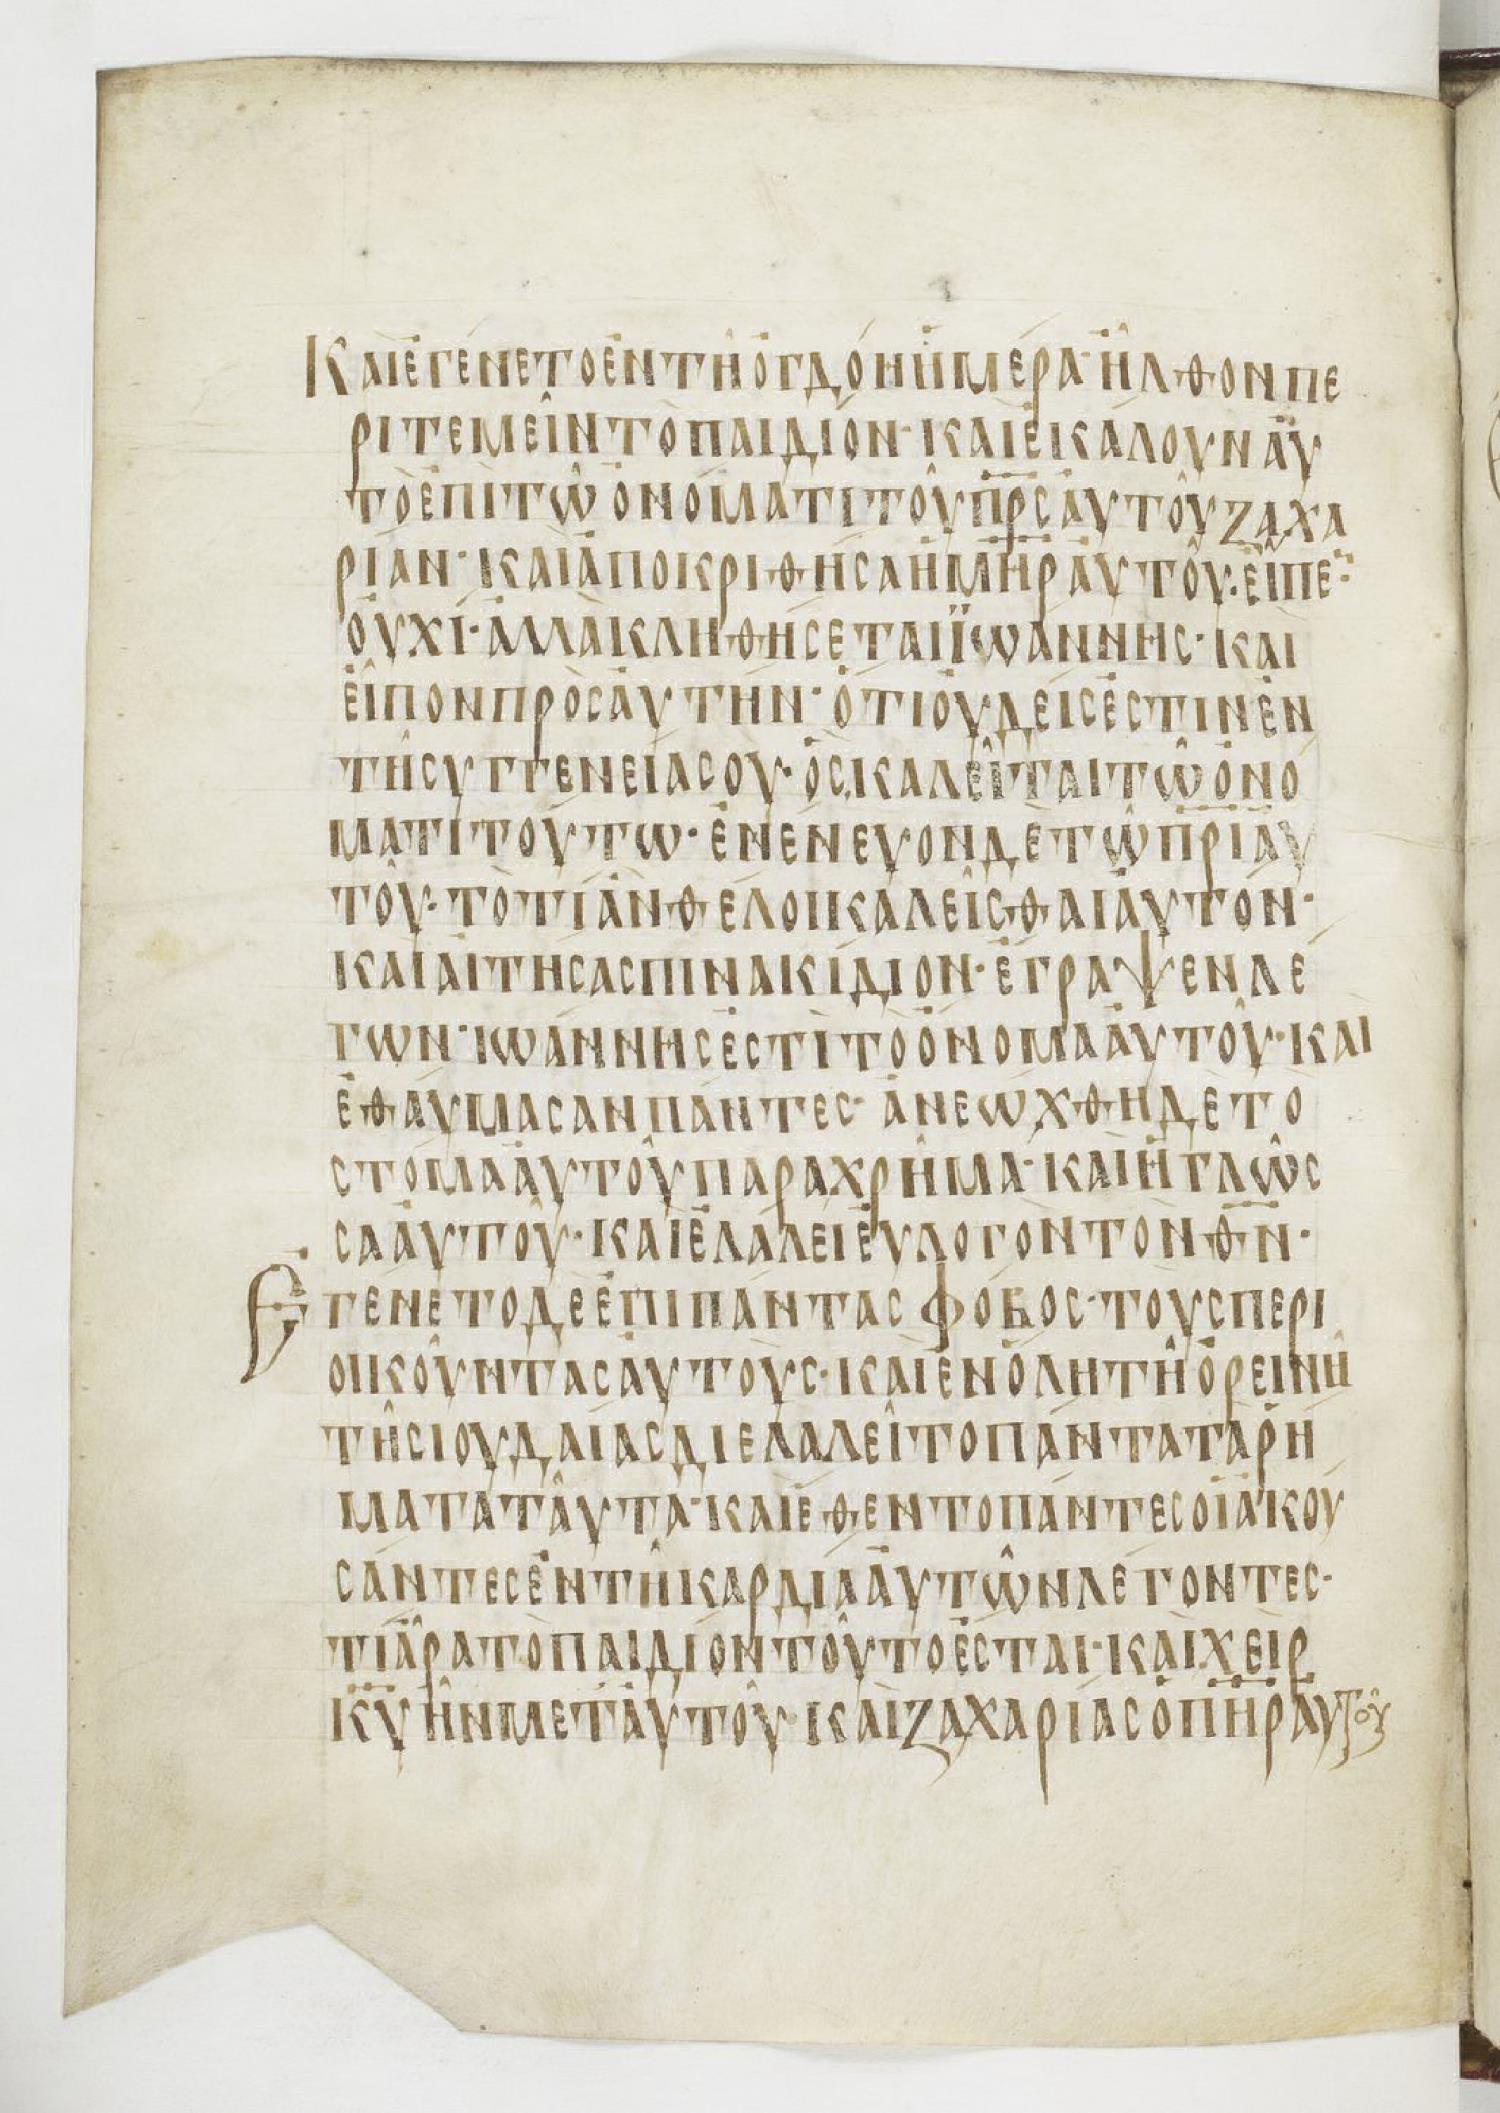 Καὶἐγένετοἐντῆὀγδόηημέρα· ἦλθονπε
ριτεμεῖντὸπαιδίον· καὶἐκάλουναὐ
τὸἐπὶτῶὀνόματιτοῦπ̅ρ̅ς̅αὐτοῦζαχα
ρίαν· καὶἀποκριθῆσαἡμ̅η̅ρ̅αὐτοῦ· εἶπε̅·
οὐχί· ἀλλὰκληθήσεταιϊωάννης· καὶ
εἶπονπρὸςαὐτὴν· ὅτιοὐδείςἐστινἐν
τῆσυγγενείασου· ὃςκαλεῖταιτῶὀνό
ματιτούτω· ἐνένευονδὲτῶπ̅ρ̅ι̅αὐ
τοῦ· τὸτίἂνθέλοικαλεῖσθαιαὐτόν·
καὶαἰτήσαςπινακίδιον· ἔγραψενλέ
γων· ἰωάννηςἐστὶτὸὄνομααὐτοῦ· καὶ
ἐθαύμασανπάντες· ἀνεώχθηδὲτὸ
στόμααὐτοῦπαραχρῆμα· καὶἡγλῶσ
σααὐτοῦ· καὶἐλάλειεὐλογόντὸνθ̅ν̅·
Ἐγένετοδὲἐπὶπάνταςφόβος· τοὺςπερι
οικοῦνταςαὐτούς· καὶἐνόλητῆὀρεινῆ
τῆςιουδαίαςδιελαλεῖτοπάνταταρή
ματαταῦτα· καὶἔθεντοπάντεςοἱἀκού
σαντεςἐντῆκαρδίααὐτῶνλέγοντες·
τίἄρατὸπαιδίοντοῦτοἔσται· καὶχεὶρ
κ̅υ̅ἦνμεταὐτοῦ· καὶζαχαρίαςὁπ̅η̅ρ̅αὐτοῦ